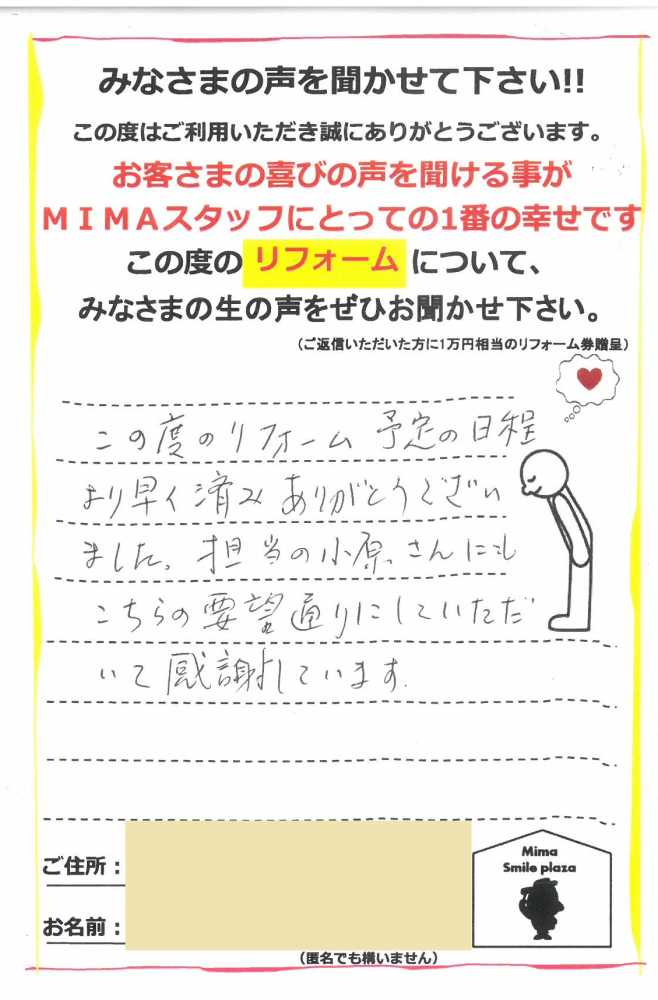 みなさまの声を聞かせて下さい!!
この度はご利用いただき誠にありがとうございます。
お客さまの喜びの声を聞ける事が
ＭＩＭＡスタッフにとっての1番の幸せです
この度の リフォーム について、
みなさまの生の声をぜひお聞かせ下さい。
（ご返信いただいた方に1万円相当のリフォーム券贈呈）
この度のリフォーム 予定の日程
より早く済み ありがとうござい
ました。担当の小原さんにも
こちらの要望通りにしていただ
いて感謝しています.
ご住所：
お名前：
（匿名でも構いません）
Mima
Smile plaza